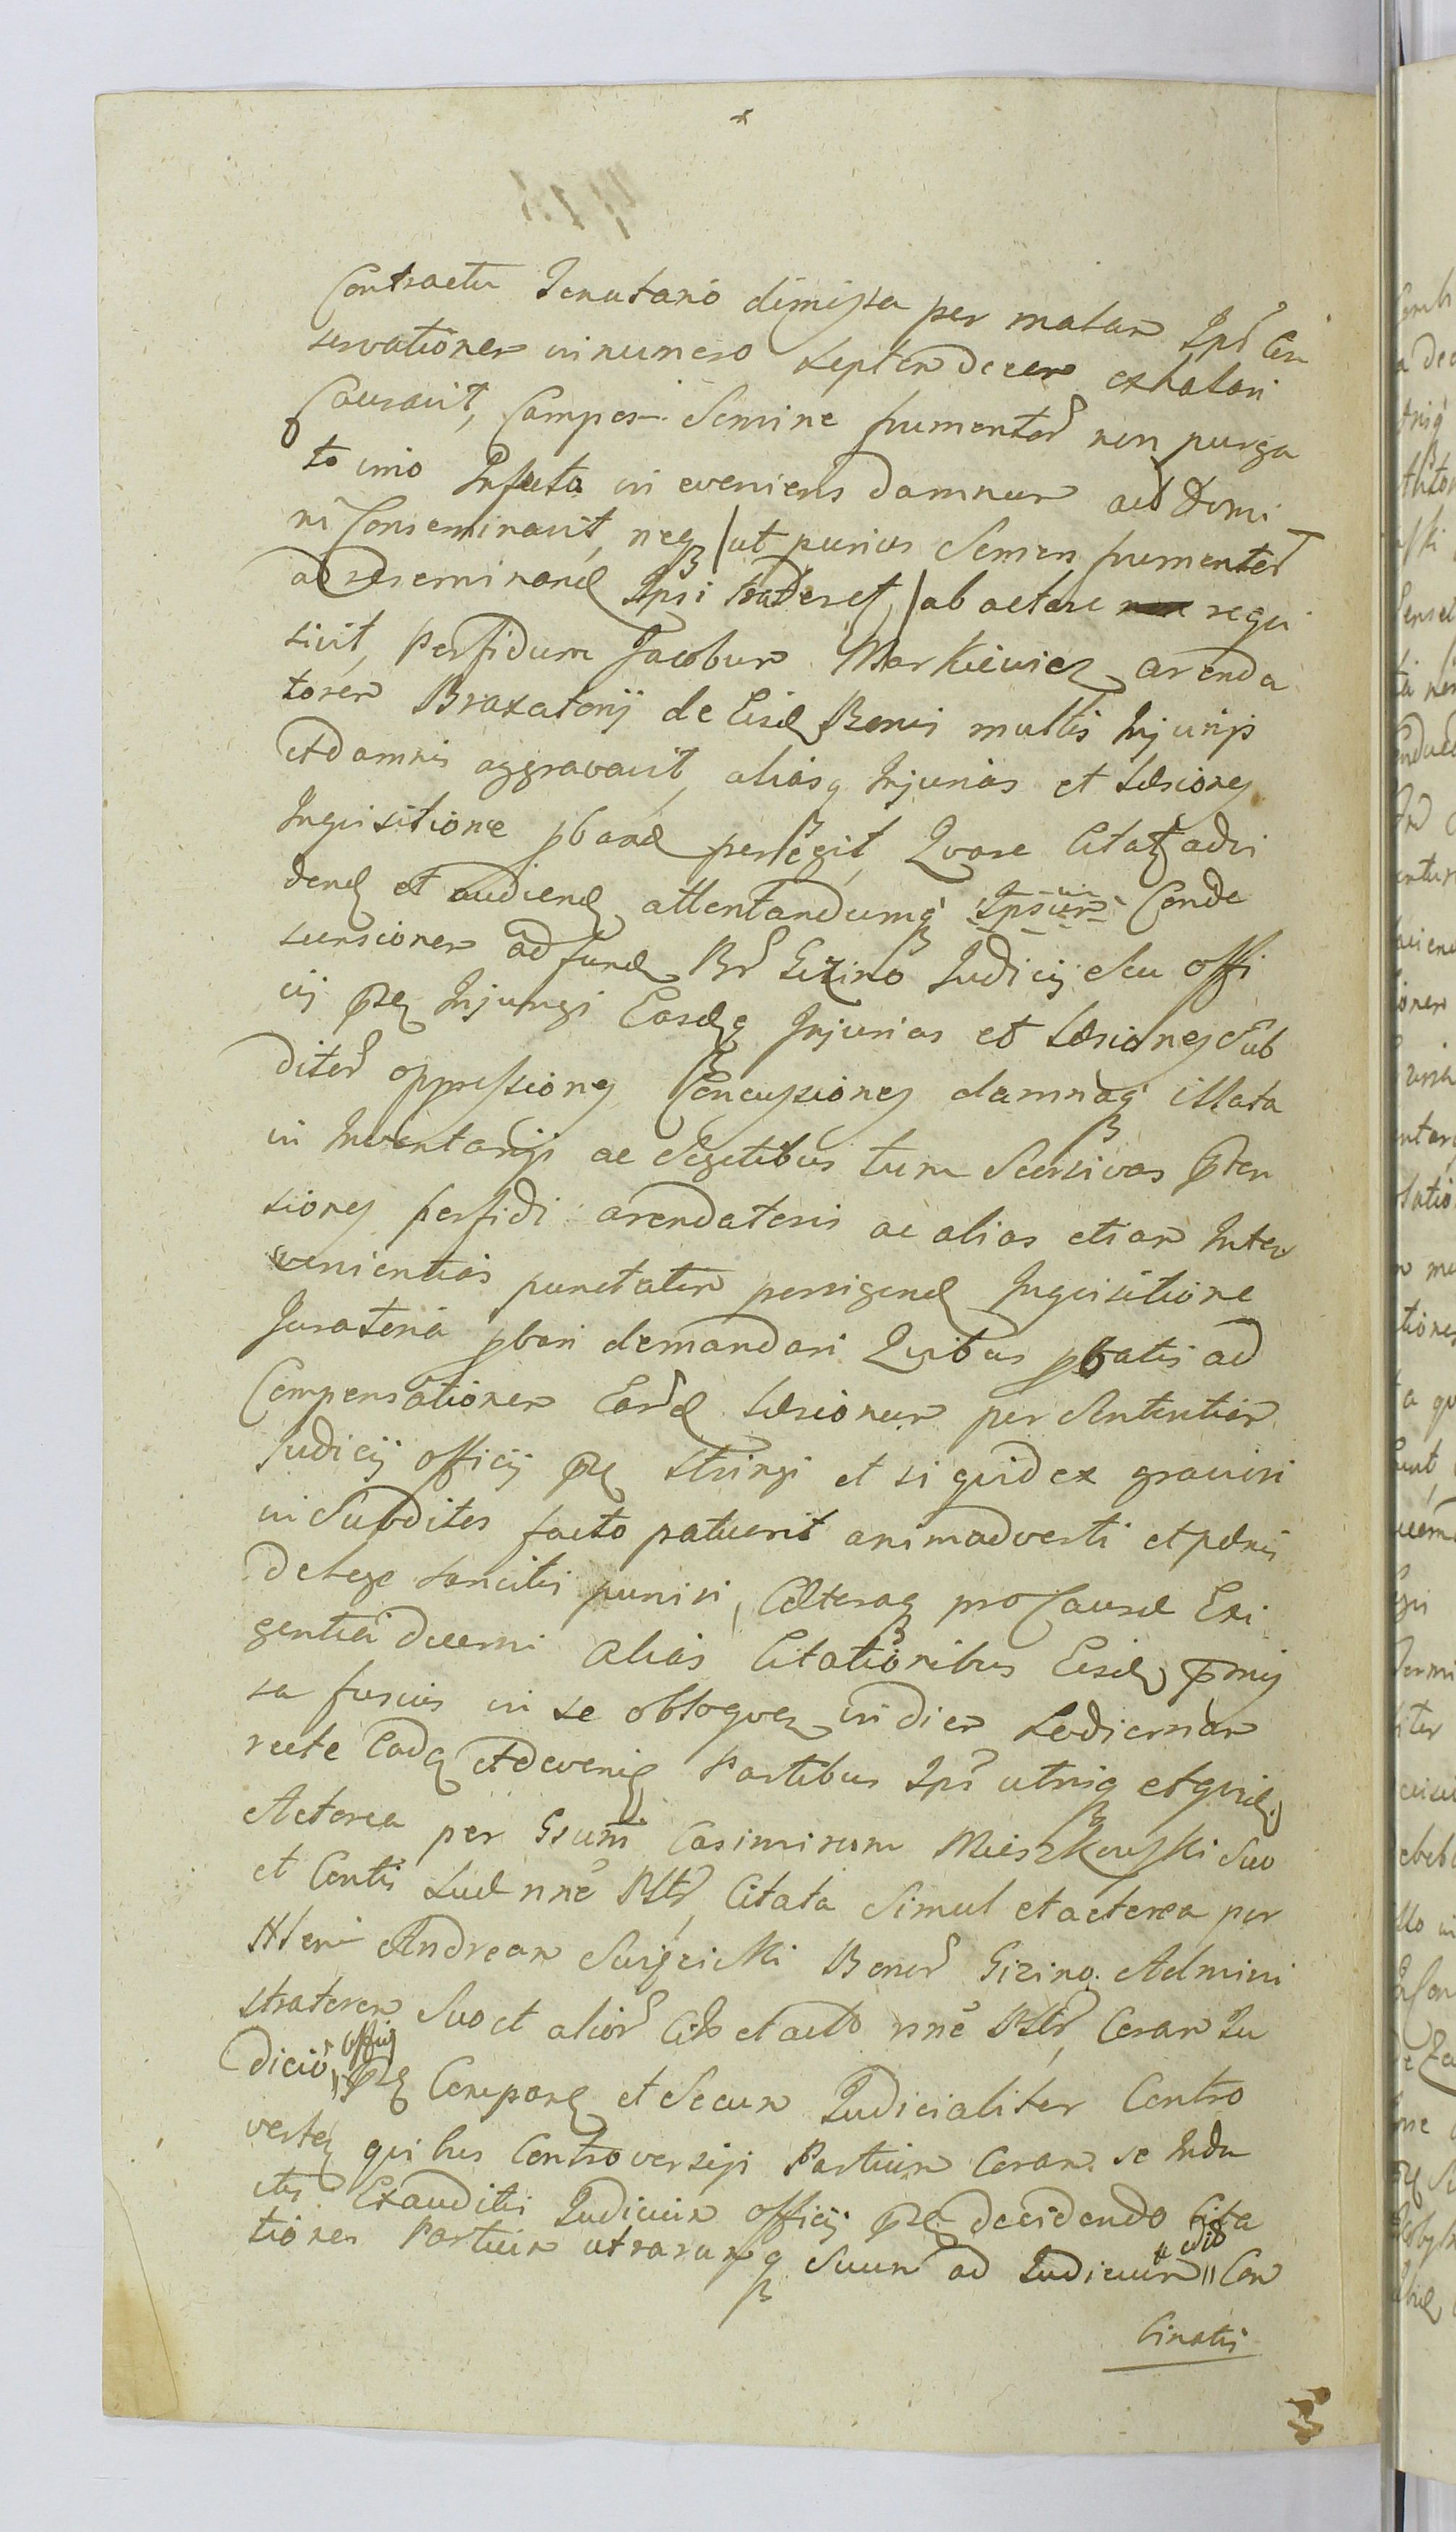 Contractu Tenutario dimissa per malam Ips Con
servationem in numero septendecem exhalari
Causavit, Campos Semine frumentor non purga
to imo Infecto in eveniens damnum aed Domi
ni Conseminavit, neq ut purius Semen frumentor
ad reseminand Ipsi traderet, ab actore requi
sivit, perfidum Jacobum Markiewicz arenda
torem Braxatorij de Eisd Bonis multis Injurijs
et damnis aggravavit, aliasq Injurias et Læsiones
Inquisitione pband peregit, Quare Citat ad vi
dend et audiend attentandumq Ipsum Conde
scensionem ad fund Br Gizino Judicij Seu offi
cij prs Injungi Easdq Injurias et Læsiones Sub
ditor oppressiones Concussiones damnaq illata
in Inventarijs ac Segetibus tum Scorsivas prten
siones perfidi arendatoris ac alias etiam Inter
venientias punctatim porrigend Inquisitione
Juratoria pbari demandari Quibus pbatis ad
Compensationem Eard Læsionum per Sententiam
Judicij officij prs stringi et si quid ex graviori
in Subditos facto patuerit animadverti et pænis
de Lege sancitis puniri, Cæteraq pro Causæ Exi
gentia decerni alias Citationibus Eisd prmis
sa fusius in se obloquen in diem hodiernam
recte Cadq et adveniq Partibus Ips utrisq et quid
Actorea per Grum Casimirum Mieszkowski Suo
et Contis Sud nne Pltr, Citata Simul et actorea per
Andream Swięcicki Bonor Gizino Admini
stratorem Suo et alior Cito et acto nne Pltr, Coram Ju
dicio officij prs Comparen et Secum Judicialiter Contro
verten quibus Controversijs Partium Coram se Indu
ctis Exauditis Judicium officij prs decidendo Cita
tiones Partium utrarumq Suum ad Judicium Con
cinatis